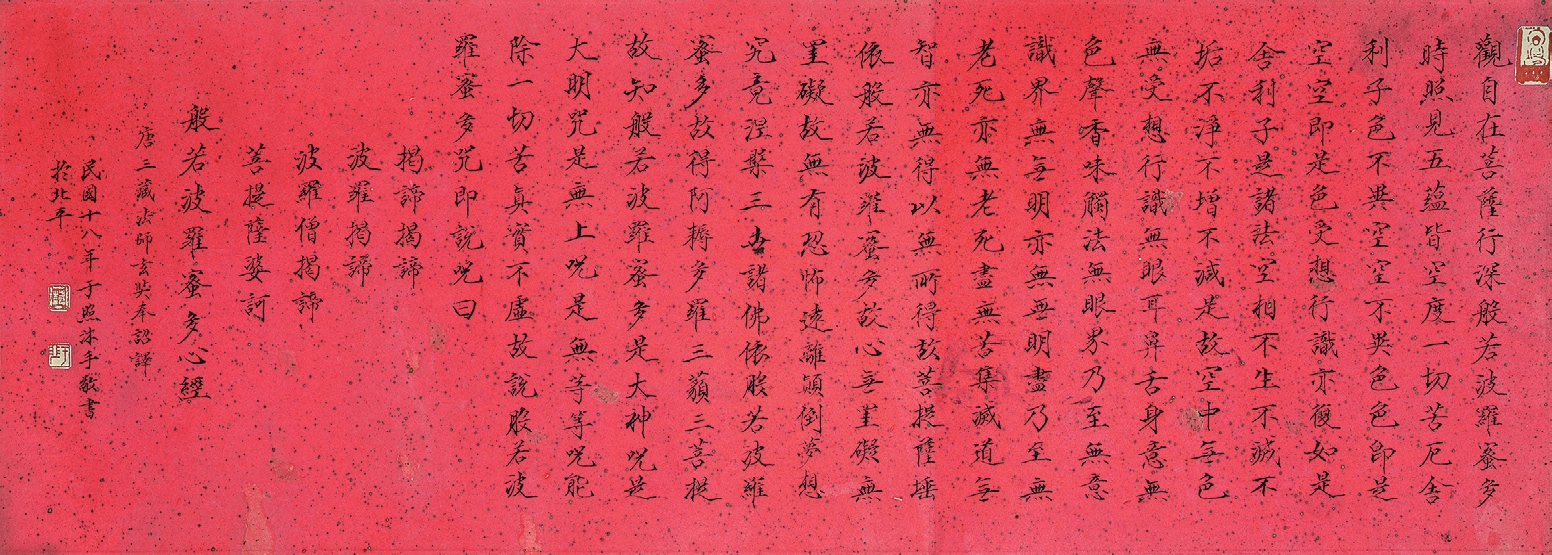 觀自在菩薩行深般若波羅蜜多
時照見五蘊皆空度一切苦厄舍
利子色不異空空不異色色即是
空空即是色受想行識亦復如是
舍利子是諸法空相不生不滅不
垢不淨不增不減是故空中無色
無受想行識無眼耳鼻舌身意無
色聲香味觸法無眼界乃至無意
識界無無明亦無無明盡乃至無
老死亦無老死盡無苦集滅道無
智亦無得以無所得故菩提薩埵
依般若波羅蜜多故心無罣礙無
罣礙故無有恐怖遠離顛倒夢想
究竟涅槃三世諸佛依般若波羅
蜜多故得阿耨多羅三藐三菩提
故知般若波羅蜜多是大神咒是
大明咒是無上咒是無等等咒能
除一切苦真實不虛故說般若波
羅蜜多咒即說咒曰
揭諦揭諦
波羅揭諦
波羅僧揭諦
菩提薩婆訶
般若波羅蜜多心經
唐三藏法師玄奘奉詔譯
民國十八年于照沐手敬書
於北平